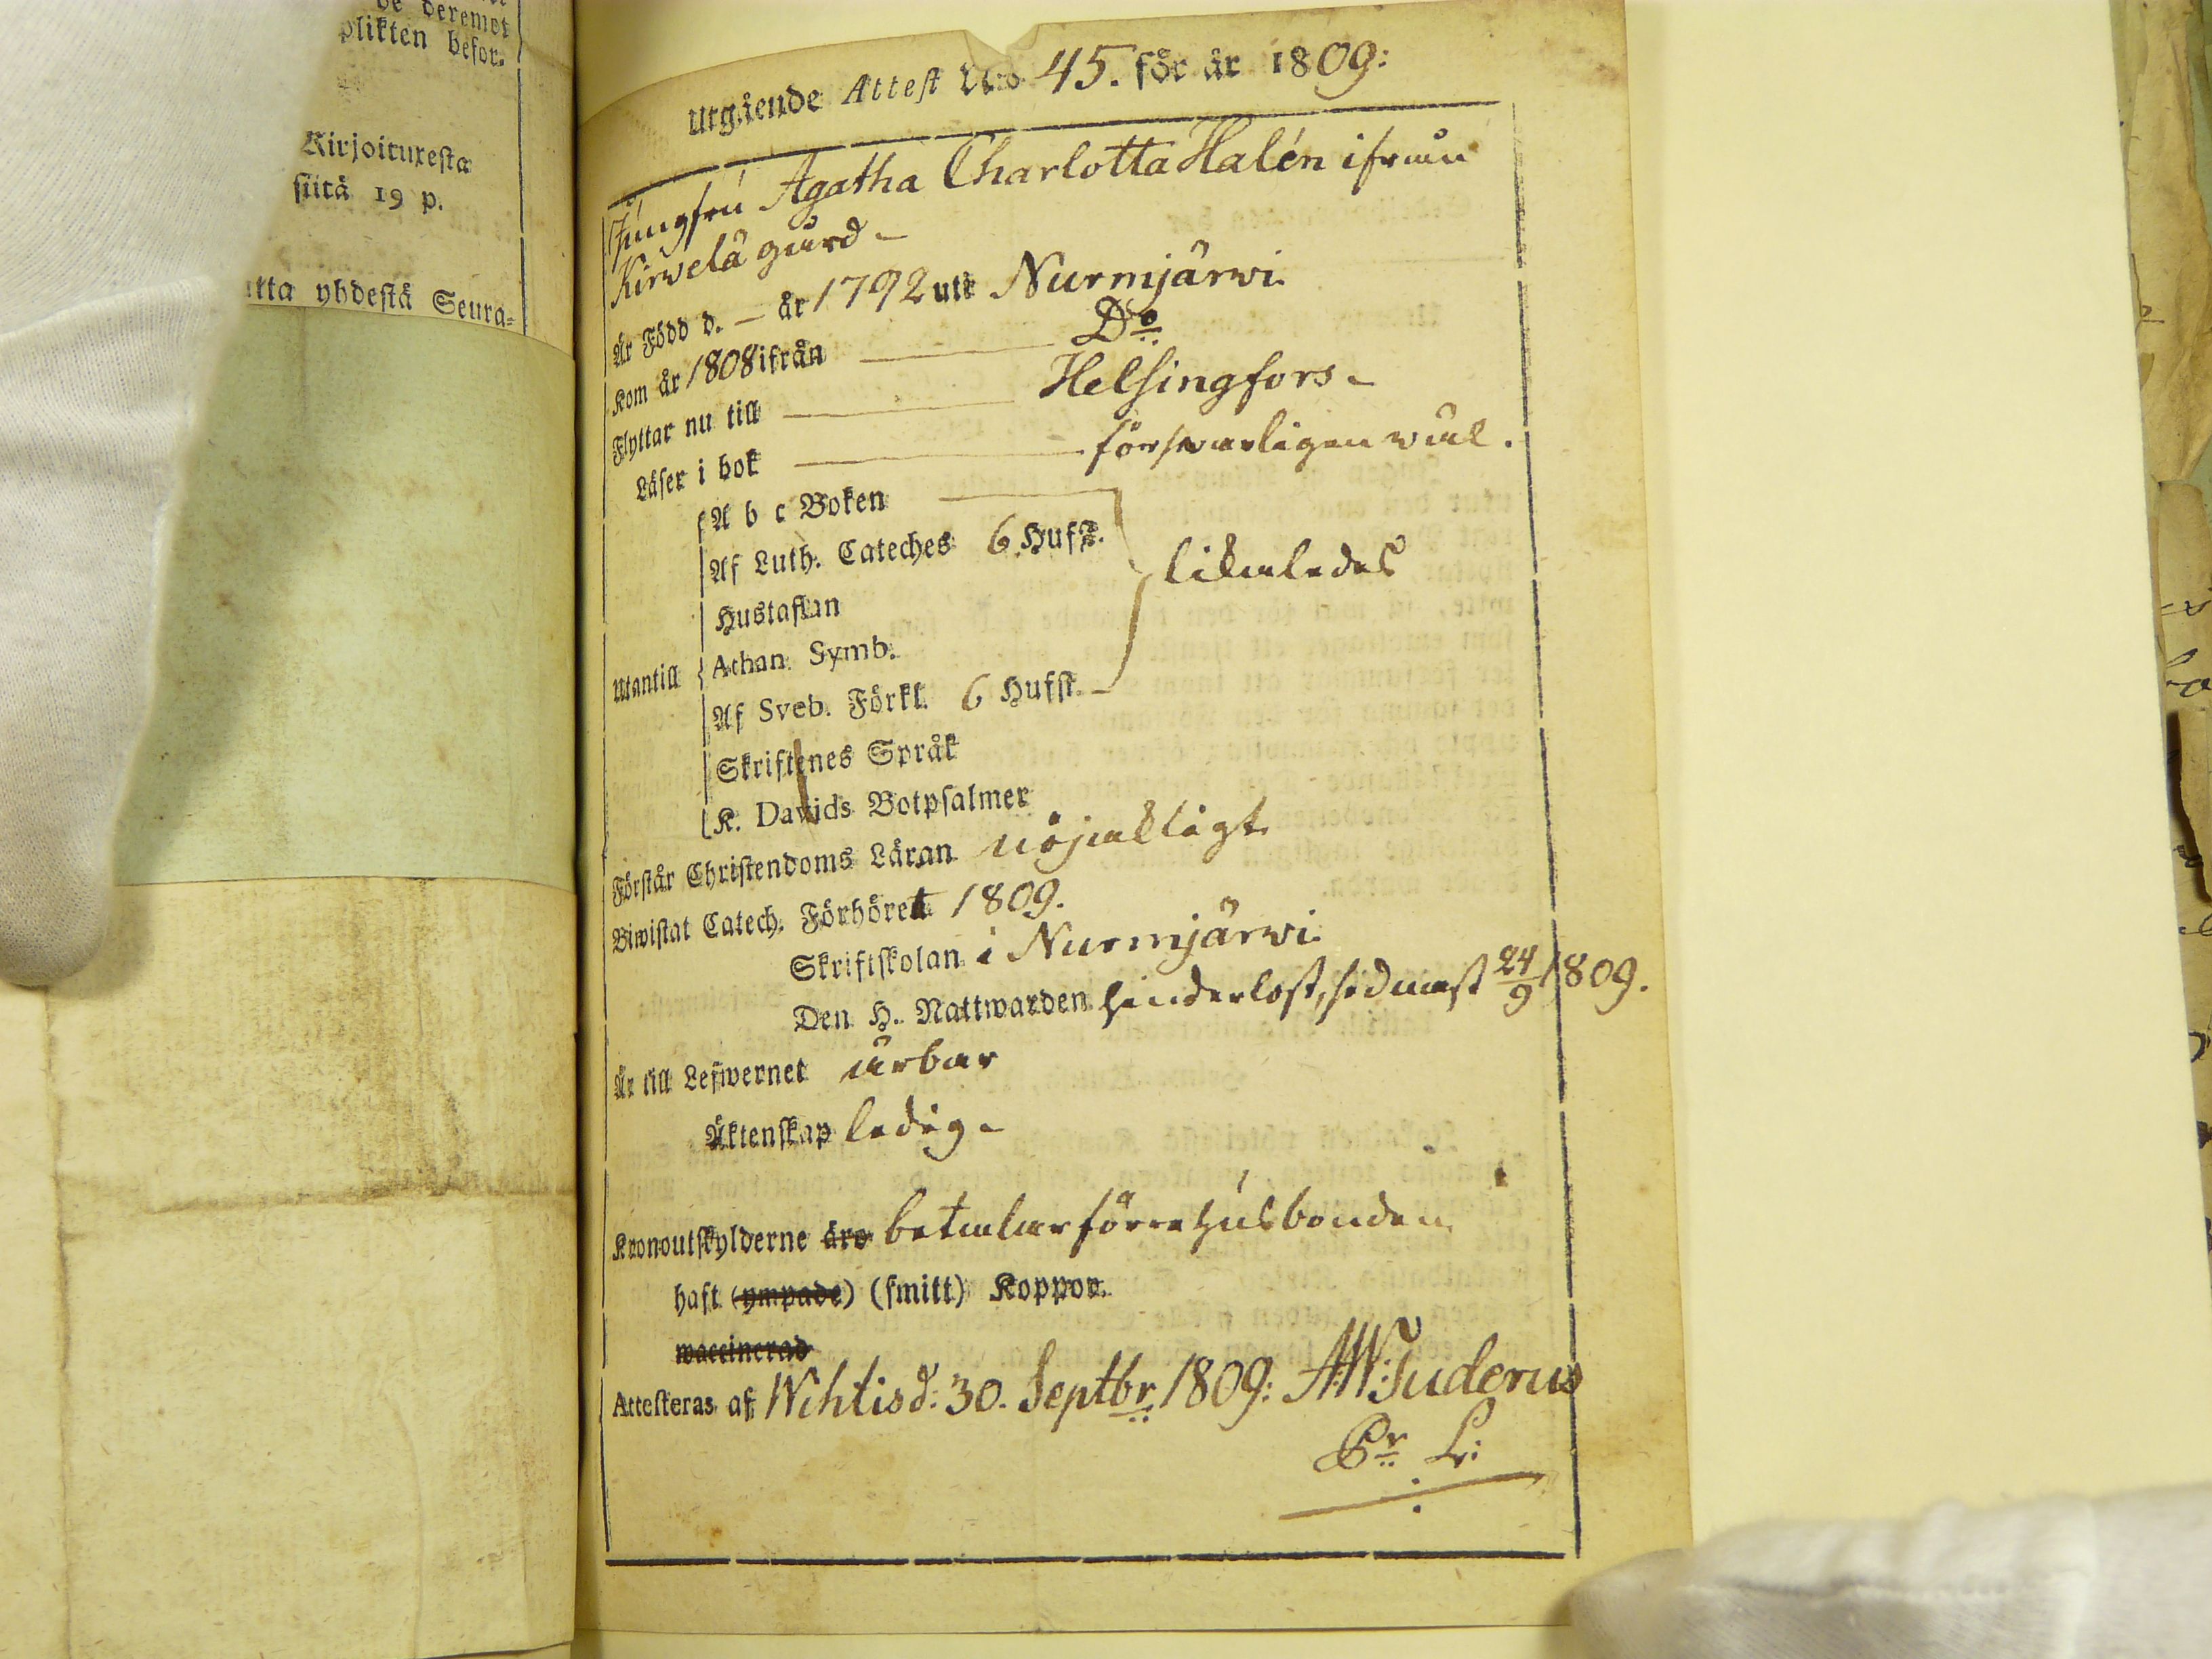 de deremot
plikten befor-
Kirjoituxesta
siitä 19 p.
yhdestä Seura-
Utgående Attest N:o 45. för år 1809:
Jungfru Agatha Charlotta Halén ifrån
Kirvelä gård –
Är Född d. – år 1792 uti Nurmjärwi
Kom år 1808 ifrån D:o
Flyttar nu till Helsingfors –
Läser i bok förswarligen wäl.
A b c Boken
Af Luth. Cateches 6 Hufst.
likaledes
Hustaflan
Utantill Athan. Symb.
Af Sveb. Förkl. 6 Hufst.
Skriftenes Språk
K. Davids Botpsalmer
Förstår Christendoms Läran nöjaktigt
Biwistat Catech. Förhöret 1809.
Skriftskolan i Nurmjärwi
Den H. Nattwarden hinderlöst, sidmast 24/9 1809.
Är till Lefwernet ärbar
Äktenskap ledig –
Kronoutskylderne äro betalar förre husbonden
haft (ympade) (smitt) Koppor.
waccinerad
Attesteras af Wihtis d: 30. Septbr 1809: AW: Tuderus
Pr L: